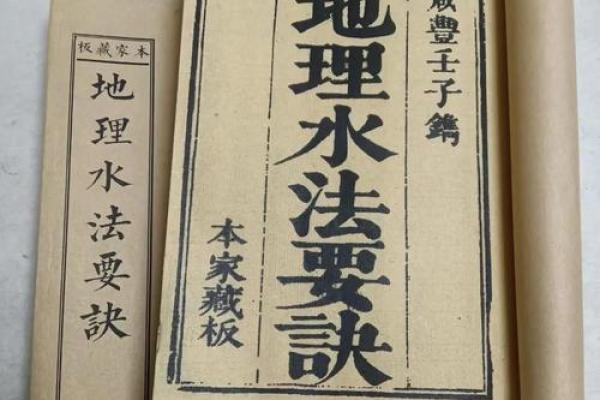 本家藏板
地理水法要訣
咸豐壬子鐫
地理水法要訣
本家藏板